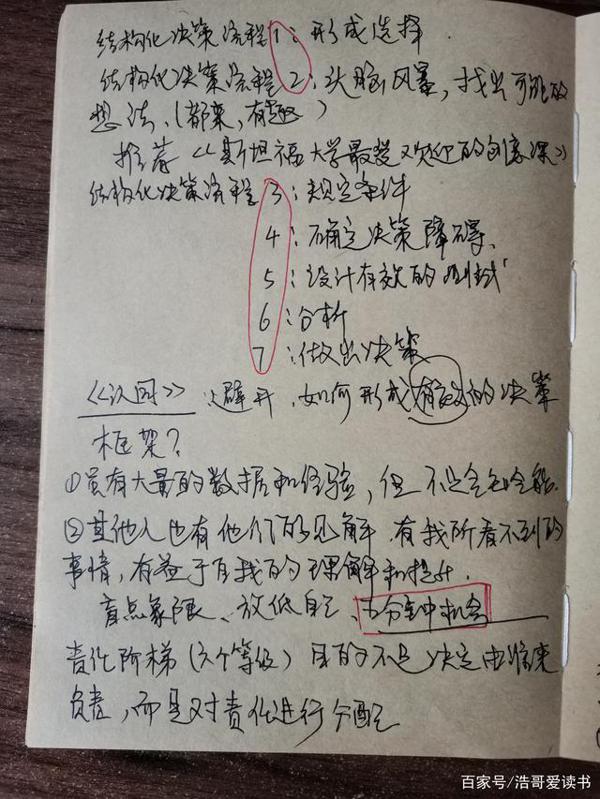 结构化决策流程1：形成选择.
结构化决策流程2：头脑风暴，找出可能的
想法.（都来，有趣）
推荐《斯坦福大学最受欢迎的创意课》
结构化决策流程3：规定条件
4：确定决策障碍.
5：设计有效的测试
6：分析
7：做出决策
《认同》：避开，如何形成有效的决策
框架？
①虽有大量的数据和经验，但不是全知全能.
②其他人也有他们的见解.有我所看不到的
事情，有益于自我的理解和提升.
盲点象限、放低自己、五分钟机会
责任阶梯（六个等级）目的不是决定由谁来
负责，而是对责任进行分配
百家号/浩哥爱读书